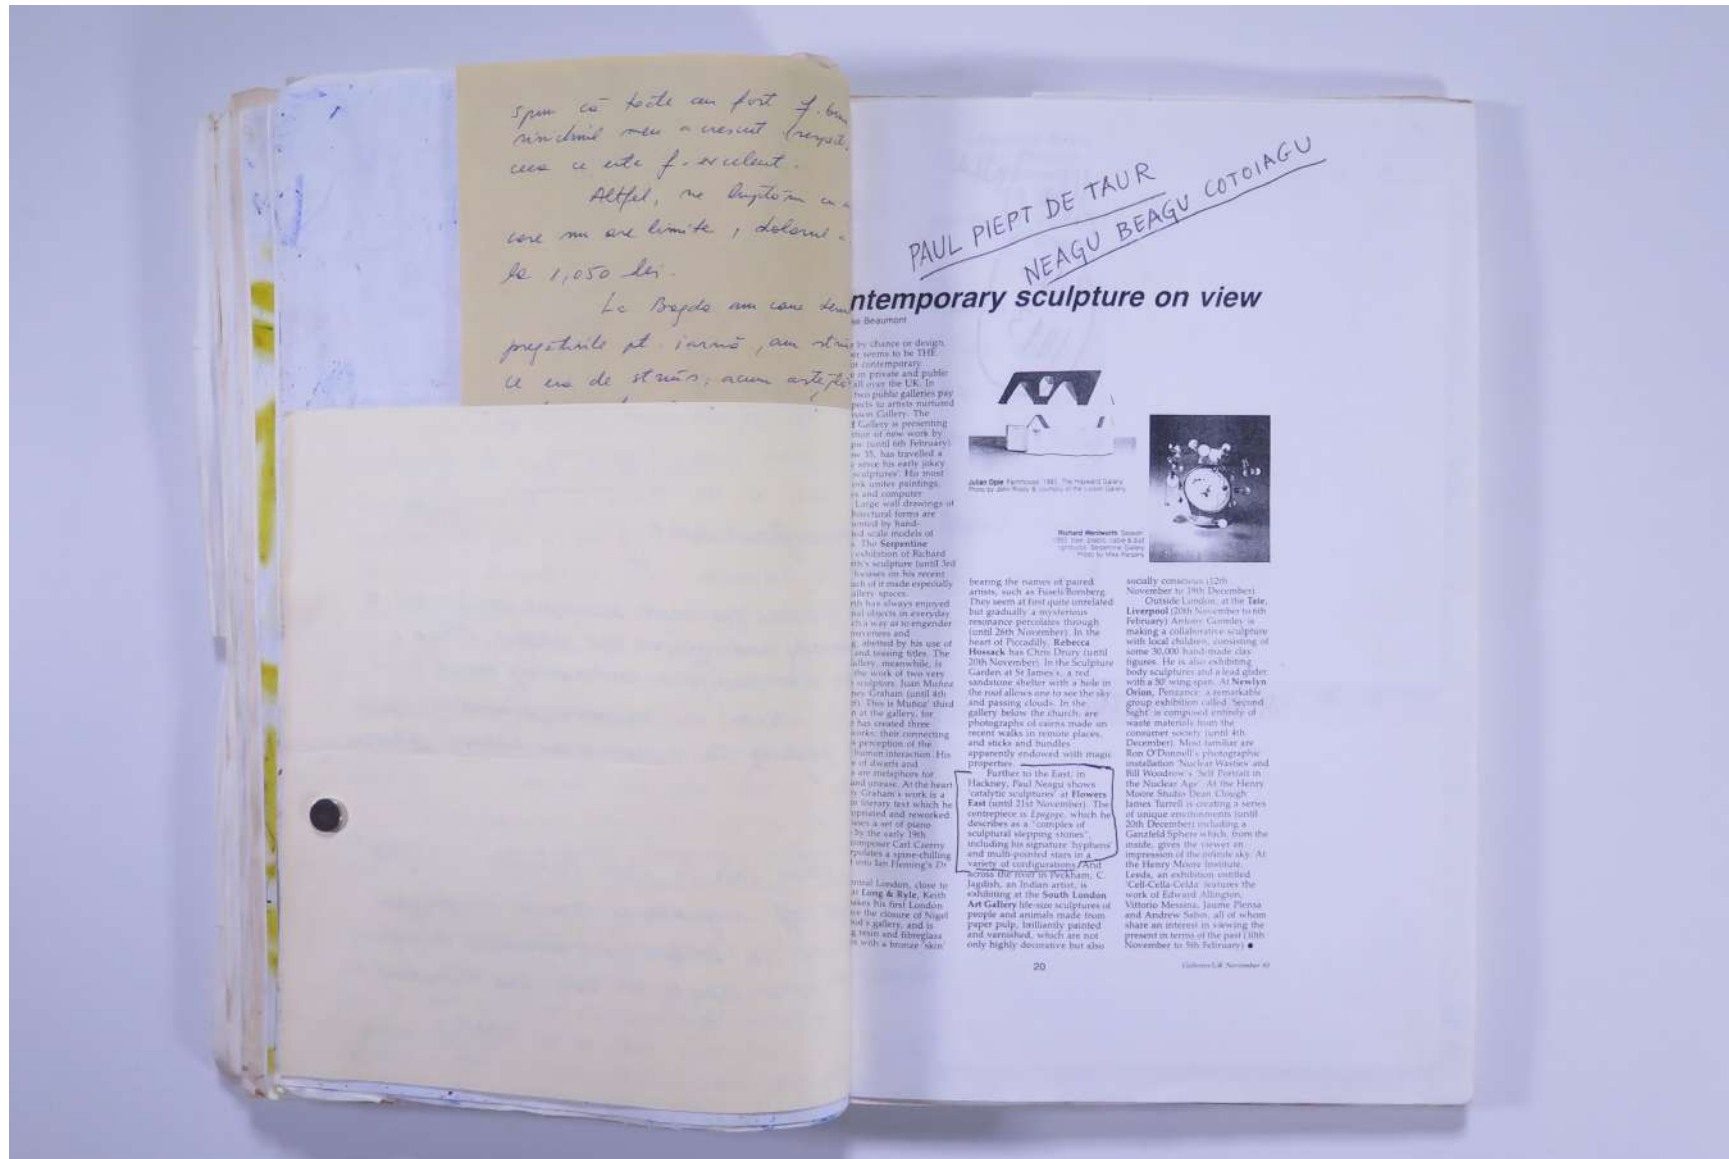 spun că toate au fost f. bune
rinichiul meu a crescut (respect.
ceea ce este f. excelent.
Altfel, ne luptăm cu
care nu are limite, dolarul
la 1,050 lei.
La Bogda am cam
pregătirile pt. iarnă, am
ce era de strâns, acum
PAUL PIEPT DE TAUR
NEAGU BEAGU COTOIAGU
ntemporary sculpture on view
Beaumont
by chance or design,
seems to be THE
contemporary
in private and public
all over the UK. In
two public galleries pay
pects to artists nurtured
Gallery. The
Gallery is presenting
of new work by
(until 6th February).
35, has travelled a
since his early jokey
sculptures'. His most
unites paintings,
and computer
Large wall drawings of
forms are
by hand-
scale models of
The Serpentine
exhibition of Richard
sculpture (until 3rd
focuses on his recent
of it made especially
spaces.
has always enjoyed
objects in everyday
a way as to engender
and
abetted by his use of
and teasing titles. The
meanwhile, is
the work of two very
sculptors, Juan Muñoz
Graham (until 4th
This is Muñoz' third
at the gallery, for
has created three
works; their connecting
perception of the
human interaction. His
of dwarfs and
are metaphors for
and unease. At the heart
Graham's work is a
literary text which he
and reworked
a set of piano
by the early 19th
composer Carl Czerny
a spine-chilling
into Ian Fleming's Dr
London, close to
at Long & Ryle, Keith
makes his first London
the closure of Nigel
gallery, and is
resin and fibreglass
with a bronze 'skin'
Julian Opie Farmhouse 1983. The Hayward Gallery
Photo by John Riddy & courtesy of the Lisson Gallery
Richard Wentworth Season
Serpentine Gallery
Photo by Mike Parsons
bearing the names of paired
artists, such as Fuseli/Bomberg.
They seem at first quite unrelated
but gradually a mysterious
resonance percolates through
(until 26th November). In the
heart of Piccadilly, Rebecca
Hossack has Chris Drury (until
20th November). In the Sculpture
Garden at St James's, a red
sandstone shelter with a hole in
the roof allows one to see the sky
and passing clouds. In the
gallery below the church, are
photographs of cairns made on
recent walks in remote places,
and sticks and bundles
apparently endowed with magic
properties.
Further to the East, in
Hackney, Paul Neagu shows
'catalytic sculptures' at Flowers
East (until 21st November). The
centrepiece is Epagoge, which he
describes as a "complex of
sculptural stepping stones",
including his signature 'hyphens'
and multi-pointed stars in a
variety of configurations. And
across the river in Peckham, C.
Jagdish, an Indian artist, is
exhibiting at the South London
Art Gallery life-size sculptures of
people and animals made from
paper pulp, brilliantly painted
and varnished, which are not
only highly decorative but also
socially conscious (12th
November to 19th December).
Outside London, at the Tate,
Liverpool (20th November to 6th
February) Antony Gormley is
making a collaborative sculpture
with local children, consisting of
some 30,000 hand-made clay
figures. He is also exhibiting
body sculptures and a lead glider
with a 50' wing-span. At Newlyn
Orion, Penzance, a remarkable
group exhibition called 'Second
Sight' is composed entirely of
waste materials from the
consumer society (until 4th
December). Most familiar are
Ron O'Donnell's photographic
installation 'Nuclear Wasties' and
Bill Woodrow's 'Self Portrait in
the Nuclear Age'. At the Henry
Moore Studio Dean Clough
James Turrell is creating a series
of unique environments (until
20th December) including a
Ganzfeld Sphere which, from the
inside, gives the viewer an
impression of the infinite sky. At
the Henry Moore Institute,
Leeds, an exhibition entitled
'Cell-Cella-Celda' features the
work of Edward Allington,
Vittorio Messina, Jaume Plensa
and Andrew Sabin, all of whom
share an interest in viewing the
present in terms of the past (10th
November to 5th February) ●
20
Galleries UK November 93